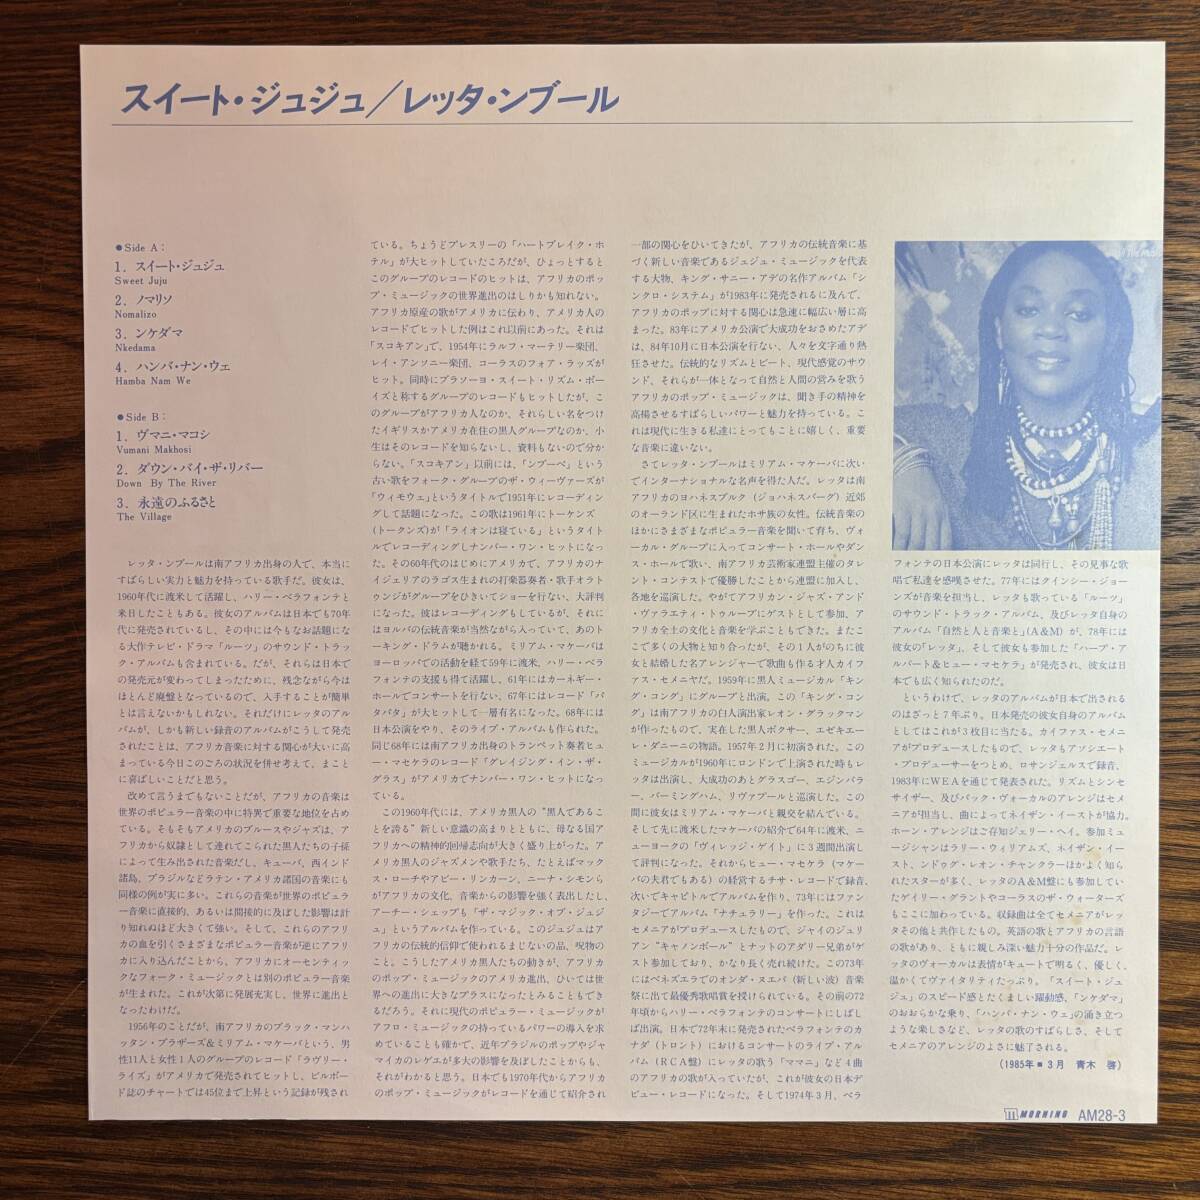 スイート・ジュジュ／レッタ・ンブール
●Side A：
1．スイート・ジュジュ
Sweet Juju
2．ノマリソ
Nomalizo
3．ンケダマ
Nkedama
4．ハンバ・ナン・ウェ
Hamba Nam We
●Side B：
1．ヴマニ・マコシ
Vumani Makhosi
2．ダウン・バイ・ザ・リバー
Down By The River
3．永遠のふるさと
The Village
レッタ・ンブールは南アフリカ出身の人で、本当に
すばらしい実力と魅力を持っている歌手だ。彼女は、
1960年代に渡米して活躍し、ハリー・ベラフォンテと
来日したこともある。彼女のアルバムは日本でも70年
代に発売されているし、その中には今もなお話題にな
る大作テレビ・ドラマ「ルーツ」のサウンド・トラッ
ク・アルバムも含まれている。だが、それらは日本で
の発売元が変わってしまったために、残念ながら今は
ほとんど廃盤となっているので、入手することが簡単
とは言えないかもしれない。それだけにレッタのアル
バムが、しかも新しい録音のアルバムがこうして発売
されたことは、アフリカ音楽に対する関心が大いに高
まっている今日このごろの状況を併せ考えて、まこと
に喜ばしいことだと思う。
改めて言うまでもないことだが、アフリカの音楽は
世界のポピュラー音楽の中に特異で重要な地位を占め
ている。そもそもアメリカのブルースやジャズは、ア
フリカから奴隷として連れてこられた黒人たちの子孫
によって生み出された音楽だし、キューバ、西インド
諸島、ブラジルなどラテン・アメリカ諸国の音楽にも
同様の例が実に多い。これらの音楽が世界のポピュラ
ー音楽に直接的、あるいは間接的に及ぼした影響は計
り知れぬほど大きくて強い。そして、これらのアフリ
カの血を引くさまざまなポピュラー音楽が逆にアフリ
カに入り込んだことから、アフリカにオーセンティッ
クなフォーク・ミュージックとは別のポピュラー音楽
が生まれた。これが次第に発展充実し、世界に進出と
なったわけだ。
1956年のことだが、南アフリカのブラック・マンハ
ッタン・ブラザーズ＆ミリアム・マケーバという、男
性11人と女性1人のグループのレコード「ラヴリー・
ライズ」がアメリカで発売されてヒットし、ビルボー
ド誌のチャートでは45位まで上昇という記録が残され
ている。ちょうどプレスリーの「ハートブレイク・ホ
テル」が大ヒットしていたころだが、ひょっとすると
このグループのレコードのヒットは、アフリカのポッ
プ・ミュージックの世界進出のはしりかも知れない。
アフリカ原産の歌がアメリカに伝わり、アメリカ人の
レコードでヒットした例はこれ以前にあった。それは
「スコキアン」で、1954年にラルフ・マーテリー楽団、
レイ・アンソニー楽団、コーラスのフォア・ラッズが
ヒット。同時にブラソーヨ・スイート・リズム・ボー
イズと称するグループのレコードもヒットしたが、こ
のグループがアフリカ人なのか、それらしい名をつけ
たイギリスかアメリカ在住の黒人グループなのか、小
生はそのレコードを知らないし、資料もないので分か
らない。「スコキアン」以前には、「ンブーベ」という
古い歌をフォーク・グループのザ・ウィーヴァーズが
「ウィモウエ」というタイトルで1951年にレコーディン
グして話題になった。この歌は1961年にトーケンズ
(トークンズ)が「ライオンは寝ている」というタイト
ルでレコーディングしナンバー・ワン・ヒットになっ
た。その60年代のはじめにアメリカで、アフリカのナ
イジェリアのラゴス生まれの打楽器奏者・歌手オラト
ゥンジがグループをひきいてショーを行ない、大評判
になった。彼はレコーディングもしているが、それに
はヨルバの伝統音楽が当然ながら入っていて、あのト
ーキング・ドラムが聴かれる。ミリアム・マケーバは
ヨーロッパでの活動を経て59年に渡米、ハリー・ベラ
フォンテの支援も得て活躍し、61年にはカーネギー・
ホールでコンサートを行ない、67年にはレコード「パ
タパタ」が大ヒットして一層有名になった。68年には
日本公演をやり、そのライブ・アルバムも作られた。
同じ68年には南アフリカ出身のトランペット奏者ヒュ
ー・マセケラのレコード「グレイジング・イン・ザ・
グラス」がアメリカでナンバー・ワン・ヒットになっ
ている。
この1960年代には、アメリカ黒人の“黒人であるこ
とを誇る”新しい意識の高まりとともに、母なる国ア
フリカへの精神的回帰志向が大きく盛り上がった。ア
メリカ黒人のジャズメンや歌手たち、たとえばマック
ス・ローチやアビー・リンカーン、ニーナ・シモンら
がアフリカの文化、音楽からの影響を強く表出したし、
アーチー・シェップも「ザ・マジック・オブ・ジュジ
ュ」というアルバムを作っている。このジュジュはア
フリカの伝統的信仰で使われるまじないの品、呪物の
こと。こうしたアメリカ黒人たちの動きが、アフリカ
のポップ・ミュージックのアメリカ進出、ひいては世
界への進出に大きなプラスになったとみることもでき
るだろう。それに現代のポピュラー・ミュージックが
アフロ・ミュージックの持っているパワーの導入を求
めていることも確かで、近年ブラジルのポップやジャ
マイカのレゲエが多大の影響を及ぼしたことからも、
それがわかると思う。日本でも1970年代からアフリカ
のポップ・ミュージックがレコードを通じて紹介され
一部の関心をひいてきたが、アフリカの伝統音楽に基
づく新しい音楽であるジュジュ・ミュージックを代表
する大物、キング・サニー・アデの名作アルバム「シ
ンクロ・システム」が1983年に発売されるに及んで、
アフリカのポップに対する関心は急速に幅広い層に高
まった。83年にアメリカ公演で大成功をおさめたアデ
は、84年10月に日本公演を行ない、人々を文字通り熱
狂させた。伝統的なリズムとビート、現代感覚のサウ
ンド、それらが一体となって自然と人間の営みを歌う
アフリカのポップ・ミュージックは、聞き手の精神を
高揚させるすばらしいパワーと魅力を持っている。こ
れは現代に生きる私達にとってもことに嬉しく、重要
な音楽に違いない。
さてレッタ・ンブールはミリアム・マケーバに次い
でインターナショナルな名声を得た人だ。レッタは南
アフリカのヨハネスブルク（ジョハネスバーグ）近郊
のオーランド区に生まれたホサ族の女性。伝統音楽の
ほかにさまざまなポピュラー音楽を聞いて育ち、ヴォ
ーカル・グループに入ってコンサート・ホールやダン
ス・ホールで歌い、南アフリカ芸術家連盟主催のタレ
ント・コンテストで優勝したことから連盟に加入し、
各地を巡演した。やがてアフリカン・ジャズ・アンド
・ヴァラエティ・トゥループにゲストとして参加、ア
フリカ全土の文化と音楽を学ぶこともできた。またこ
こで多くの大物と知り合ったが、その1人がのちに彼
女と結婚した名アレンジャーで歌曲も作る才人カイフ
ァス・セメニヤだ。1959年に黒人ミュージカル「キン
グ・コング」にグループと出演。この「キング・コン
グ」は南アフリカの白人演出家レオン・グラックマン
が作ったもので、実在した黒人ボクサー、エゼキエー
レ・ダニーニの物語。1957年2月に初演された。この
ミュージカルが1960年にロンドンで上演された時もレ
ッタは出演し、大成功のあとグラスゴー、エジンバラ
ー、バーミングハム、リヴァプールと巡演した。この
間に彼女はミリアム・マケーバと親交を結んでいる。
そして先に渡米したマケーバの紹介で64年に渡米、ニ
ューヨークの「ヴィレッジ・ゲイト」に3週間出演し
て評判になった。それからヒュー・マセケラ（マケー
バの夫君でもある）の経営するチサ・レコードで録音、
次いでキャピトルでアルバムを作り、73年にはファン
タジーでアルバム「ナチュラリー」を作った。これは
セメニヤがプロデュースしたもので、ジャイのジュリ
アン“キャノンボール”とナットのアダリー兄弟がゲ
スト参加しており、かなり長く売れ続けた。この73年
にはベネズエラでのオンダ・ヌエバ（新しい波）音楽
祭に出て最優秀歌唱賞を授けられている。その前の72
年頃からハリー・ベラフォンテのコンサートにしばしば
出演。日本で72年末に発売されたベラフォンテのカ
ナダ（トロント）におけるコンサートのライブ・アル
バム（RCA盤）にレッタの歌う「ママニ」など4曲
のアフリカの歌が入っていたが、これが彼女の日本デ
ビュー・レコードになった。そして1974年3月、ベラ
フォンテの日本公演にレッタは同行し、その見事な歌
唱で私達を感嘆させた。77年にはクインシー・ジョー
ンズが音楽を担当し、レッタも歌っている「ルーツ」
のサウンド・トラック・アルバム、及びレッタ自身の
アルバム「自然と人と音楽と」(A＆M）が、78年には
彼女の「レッタ」、そして彼女も参加した「ハーブ・ア
ルパート＆ヒュー・マセケラ」が発売され、彼女は日
本でも広く知られたのだ。
というわけで、レッタのアルバムが日本で出される
のはざっと7年ぶり。日本発売の彼女自身のアルバム
としてはこれが3枚目に当たる。カイファス・セメニ
アがプロデュースしたもので、レッタもアソシエート
・プロデューサーをつとめ、ロサンジェルスで録音、
1983年にWEAを通じて発表された。リズムとシンセ
サイザー、及びバック・ヴォーカルのアレンジはセメ
ニアが担当し、曲によってネイザン・イーストが協力。
ホーン・アレンジはご存知ジェリー・ヘイ。参加ミュ
ージシャンはラリー・ウィリアムズ、ネイザン・イー
スト、ンドゥグ・レオン・チャンクラーほかよく知ら
れたスターが多く、レッタのA＆M盤にも参加してい
たゲイリー・グラントやコーラスのザ・ウォーターズ
もここに加わっている。収録曲は全てセメニアがレッ
タその他と共作したもの。英語の歌とアフリカの言語
の歌があり、ともに親しみ深い魅力十分の作品だ。レ
ッタのヴォーカルは表情がキュートで明るく、優しく、
温かくてヴァイタリティたっぷり。「スイート・ジュ
ジュ」のスピード感とたくましい躍動感、「ンケダマ」
のおおらかな乗り、「ハンバ・ナン・ウェ」の涌き立つ
ような楽しさなど、レッタの歌のすばらしさ、そして
セメニアのアレンジのよさに魅了される。
（1985年■3月　青木　啓）
MORNING AM28-3